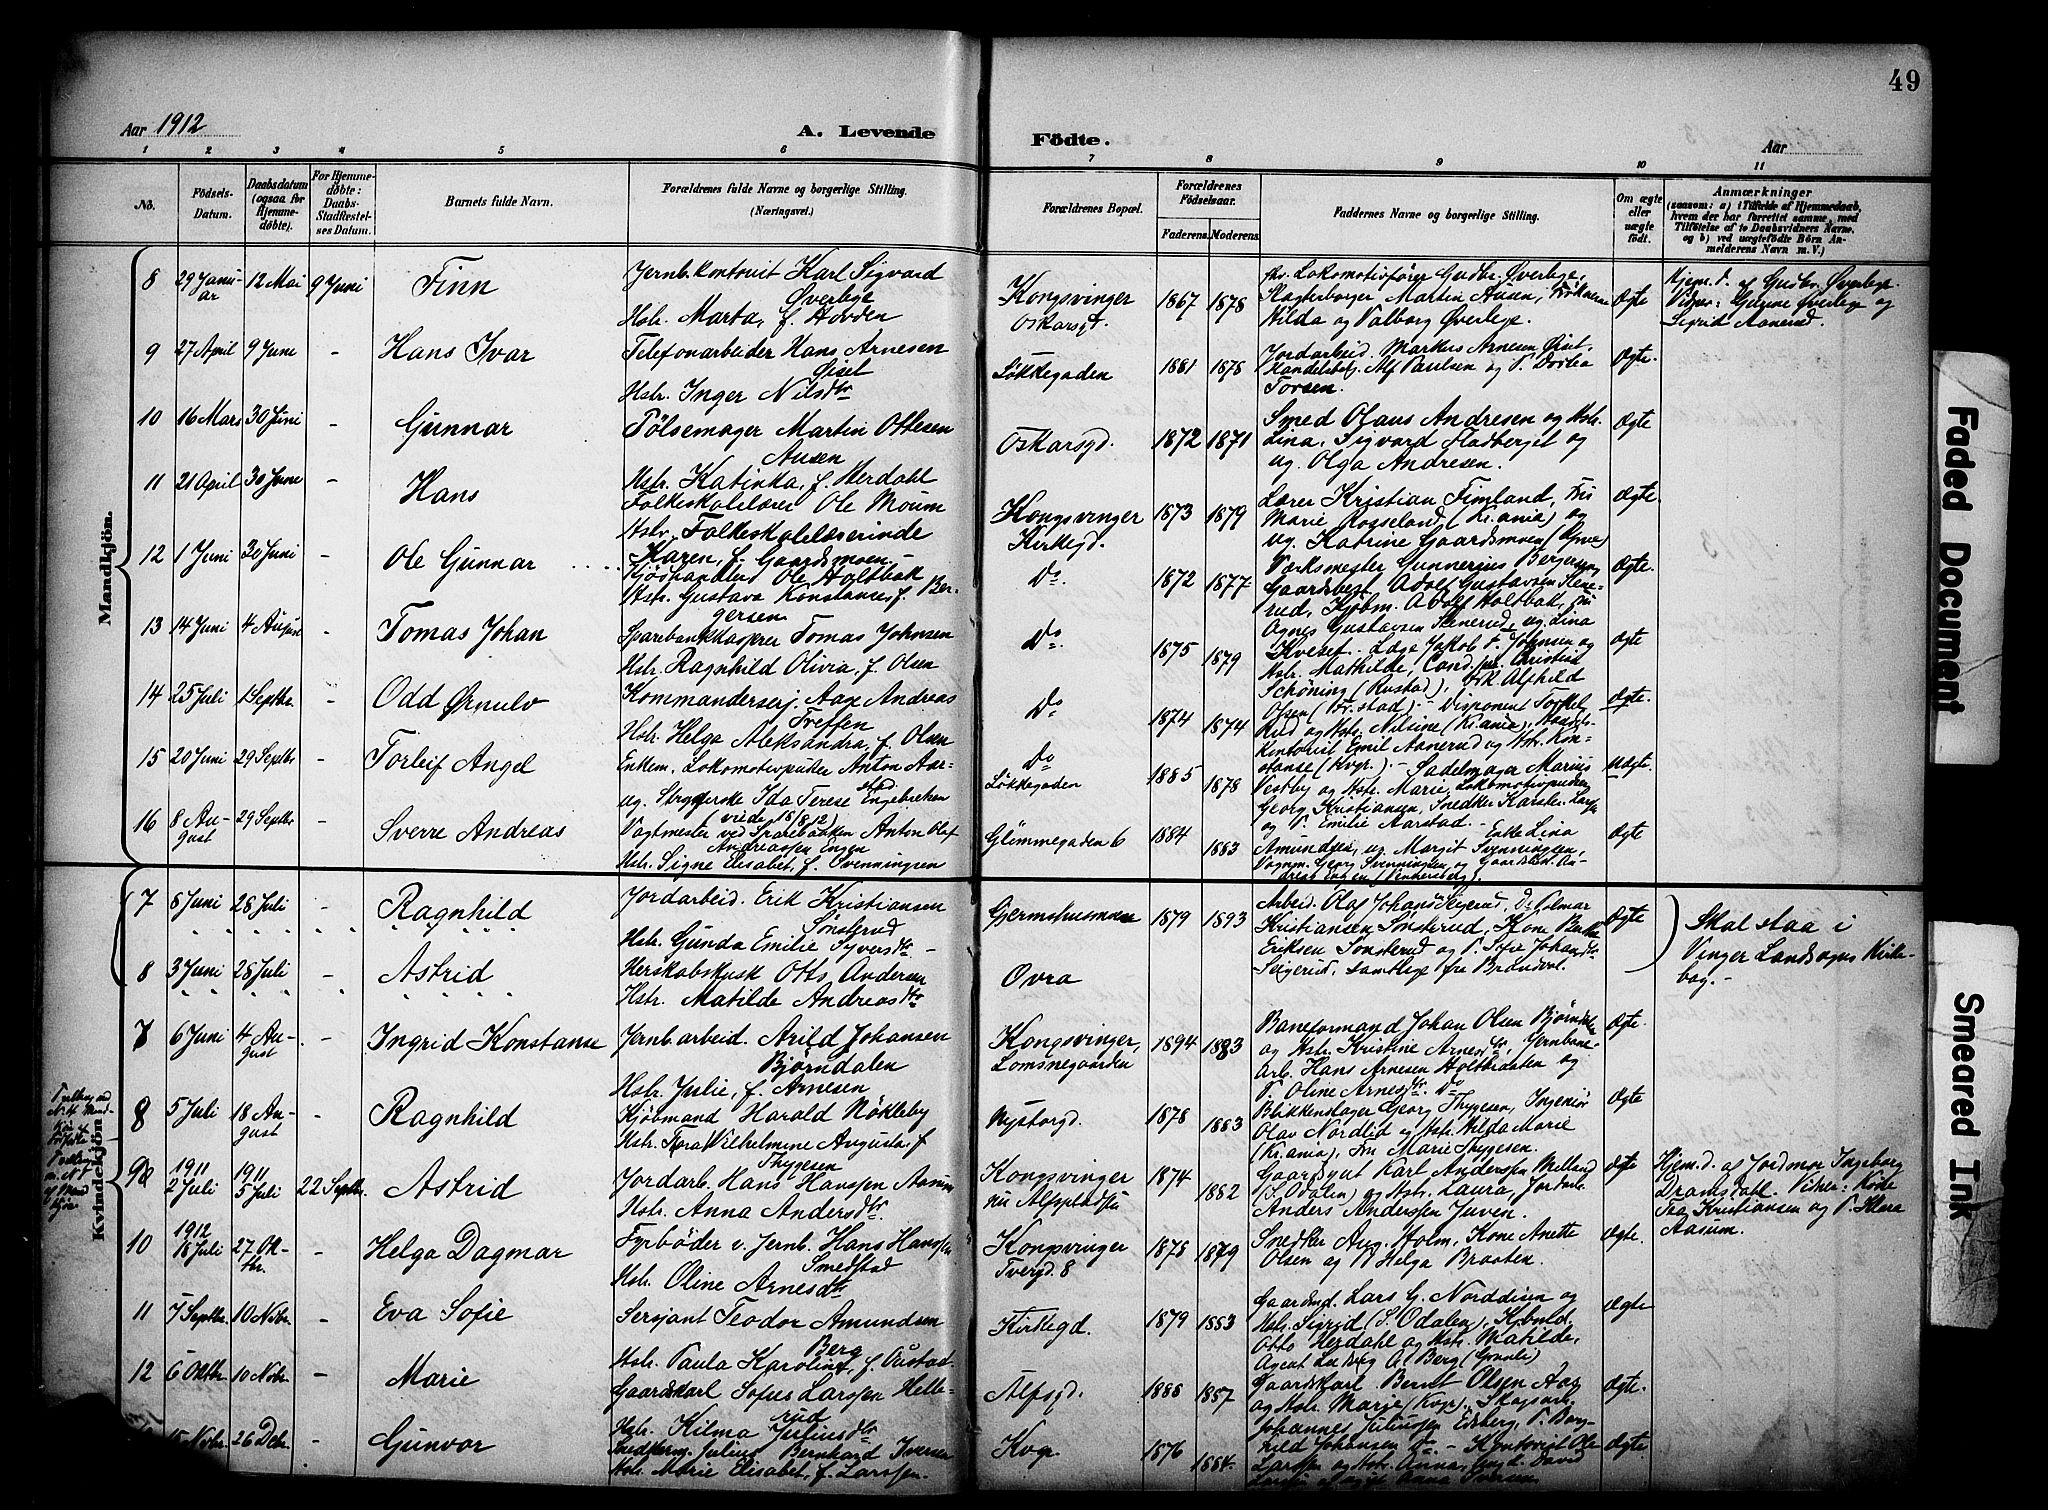 49
Aar 1912
A. Levende
Födte.
Aar
1 2 3 4 5 6 7 8 9 10 11
No.
Födsels-Datum.
Daabsdatum (ogsaa for Hjemmedöbte).
For Hjemmedöbte: Daabs-Stadfæstelses Datum.
Barnets fulde Navn.
Forældrenes fulde Navne og borgerlige Stilling.
(Næringsvei.)
Forældrenes Bopæl.
Forældrenes Födselsaar.
Faderens. Moderens.
Faddernes Navne og borgerlige Stilling.
Om ægte eller uægte födt.
Anmærkninger
(saasom: a) i Tilfælde af Hjemmedaab,
hvem der har forrettet samme, med
Tilföielse af to Daabsvidners Navne,
og b) ved uægtefödte Börn Anmelderens Navn m. V.)
Mandkjön.
8 29 Januar 12 Mai 9 Juni Finn
Jernb.kontorist Karl Sigvard
Øverbye
Hstr. Marta, f. Hovden
Kongsvinger
Oskarsgt.
1867 1878
Lokomotivfører Gudbr. Øverbye,
Martin Ausen,
Hilda og Valborg Øverbye.
Ægte
Hjem.d. af Gudbr. Øverbye.
Vidner: Øverbye og
Sigrid Aanerud.
9 27 April 9 Juni - Hans Ivar
Telefonarbeider Hans Arnesen
Øiset
Hstr. Inger Nilsdtr
Løkkegaden
1881 1878
Jordarbeid. Markus Arnesen Øiset.
Alf Paulsen og P. Dortea
Torsen.
Ægte.
10 16 Mars 30 Juni - Gunnar
Pølsemager Martin Ottesen
Ausen
Hstr. Katinka, f. Herdahl
Oskarsgd.
1872 1871
Smed Olaus Andresen og Hstr.
Lina, Sigvard Fladberget og
ug. Olga Andresen.
Ægte
11 21 April 30 Juni - Hans
Folkeskolelærer Ole Moum
Hstr. Folkeskolelærerinde
Karen, f. Gaardsmoen.
Kongsvinger
Kirkegd.
1873 1879
Lærer Kristian Fimland, Fru
Marie Rosseland (Kr.ania) og
ug. Katrine Gaardsmoen
Ægte.
12 1 Juni 30 Juni - Ole Gunnar
Kjødhandler Ole Holtbak
Hstr. Gustava Konstanse, f. Ber-
gersen
Do.
1872 1877
Værksmester Gunnerius Bergersen,
Gaardsbest. Adolf Gustavsen Skine-
rud, Kjøbm. Adolf Holtbak, Fru
Agnes Gustavsen Skinerud, ug. Lina
Kveset.
Ægte.
13 14 Juni 4 August - Tomas Johan
Sparebankkasserer Tomas Johnsen
Hstr. Ragnhild Olivia, f. Olsen
Do.
1875 1879
Læge Jakob F. Johnsen og
Hstr. Mathilde, Cand. jur. Christian
Schöning (Rustad), Frk Alfhild
Olsen (Fr.stad)
Ægte
14 25 Juli 1 Septbr. - Odd Ørnulv
Kommandersерj. Aage Andreas
Treffen
Hstr. Helga Aleksandra, f. Olsen
Do
1874 1874
Disponent Torkel
Rud og Hstr. Nilsine (Kr.ania),
Kontorist Emil Aanerud og Hstr. Kon-
stanse (Kvgr.)
Ægte.
15 20 Juni 29 Septbr - Torleif Angel
Enkem. Lokomotivpudser Anton Aar-
stad
ug. Strygerske Ida Terese Engebretsen
(viede 18/8 12)
Do
Løkkegaden
1885 1878
Sadelmager Marius
Vestby og Hstr. Marie, Lokomotivpudser
Georg Kristiansen, Snedker Karsten
og P. Emilie Aarstad.
Uægte
16 8 August 29 Septbr - Sverre Andreas
Vagtmester ved Sparebanken Anton Olaf
Andreassen Engen
Hstr. Signe Elisabet, f. Svenningsen
Glømmegaden 6
1884 1883
Enke Lina
Amundsen, ug. Margit Svenningsen,
Vognm. Georg Svenningsen og Gaardsbest. An-
dreas Engen
Ægte
Kvindekjön
7 8 Juni 28 Juli - Ragnhild
Jordarbeid. Erik Kristiansen
Sönsterud
Hstr. Gunda Emilie Syversdtr
Germshusmoen
1879 1893
Arbeid. Olaf Johans. Seigerud, Do Hilmar
Kristiansen Sönsterud, Kone Berthe
Eriksen Sonsterud og P. Sofie Johansdtr
Seigerud, samtlige fra Brandval.
Ægte
Skal staa i
Vinger Landsogns Kirke-
bog.-
8 3 Juni 28 Juli - Astrid
Herskabskusk Otto Andersen
Hstr. Matilde Andreasdtr
Ovra
7 6 Juni 4 August - Ingrid Konstanse
Jernb.arbeid. Arild Johansen
Björndalen
Hstr. Julie, f. Arnesen
Kongsvinger,
Lomsnegaarden
1894 1883
Baneformand Johan Olsen Björndalen
og Hstr. Kristine Arnesdtr, Jernbane-
arb. Hans Arnesen Holtbidalen og
P. Oline Arnesdtr. Do
Ægte.
8 5 Juli 18 August - Ragnhild
Kjöbmand Harald Nökleby
Hstr. Tora Vilhelmine Augusta, f.
Thygesen
Nystorgd.
1878 1883
Blikkenslager Georg Thygesen, Ingeniör
Olav Nordlid og Hstr. Hilda Marie
(Kr.ania), Fru Marie Thygesen.
Ægte
9 1911 2 Juli 1911 5 Juli 22 Septbr. Astrid
Jordarb. Hans Hanssen Aasum
Hstr. Anna Andersdtr.
Kongsvinger
nu
1874 1882
Gaardbr. Karl Anderssen Melland
(S. Odalen) og Hstr. Laura, Jordarb.
Anders Anderssen Juven.
Ægte
Hjem.d. af Jordmor Ingeborg
Dramstad. Vidner: Enke
Kristiansen og P. Klara
Aasum.
10 1912 18 Juli 27 Oktbr. - Helga Dagmar
Fyrböder v. Jernb. Hans Hanssen
Smedstad
Hstr. Oline Arnesdtr
Kongsvinger
Tvergd. 8
1878 1879
Snedker Aug. Holm, Kone Anette
Olsen og P. Helga Braaten.
Ægte.
11 7 Septbr. 10 Novbr. - Eva Sofie
Sersjant Teodor Amundsen
Berg
Hstr. Paula Karoline, f. Oustad
Kirkegd.
1879 1883
Gaardbr. Lars G. Norddiven og
Hstr. Sigrid (S. Odalen), Kjöbmd.
Otto Herdahl og Hstr. Matilde,
Agent Ludvig A. Berg
Ægte
12 6 Oktbr. 10 Novbr. - Marie
Gaardskarl Sofus Larssen Helle-
rud
Hstr. Hilma Juliusdtr
Alfsgd.
1888 1887
Gaardskarl Bernt Olsen Aas
og Hstr. Marie (Kvgr.), Skogsarb.
Johannes Juliussen Edsberg, P. Borg-
hild Johansen Do
Ægte.
15 Novbr. 26 Debr. - Gunvor
Snedkerm. Julius Bernhard Iversen
Hstr. Marie Elisabet, f. Larssen.
Kvgr.
1876 1884.
Kontorist Ole
Larssen og Hstr. Anna, David
Larssen og ug. Anna Iversen
Ægte
Faded Document
Smeared Ink